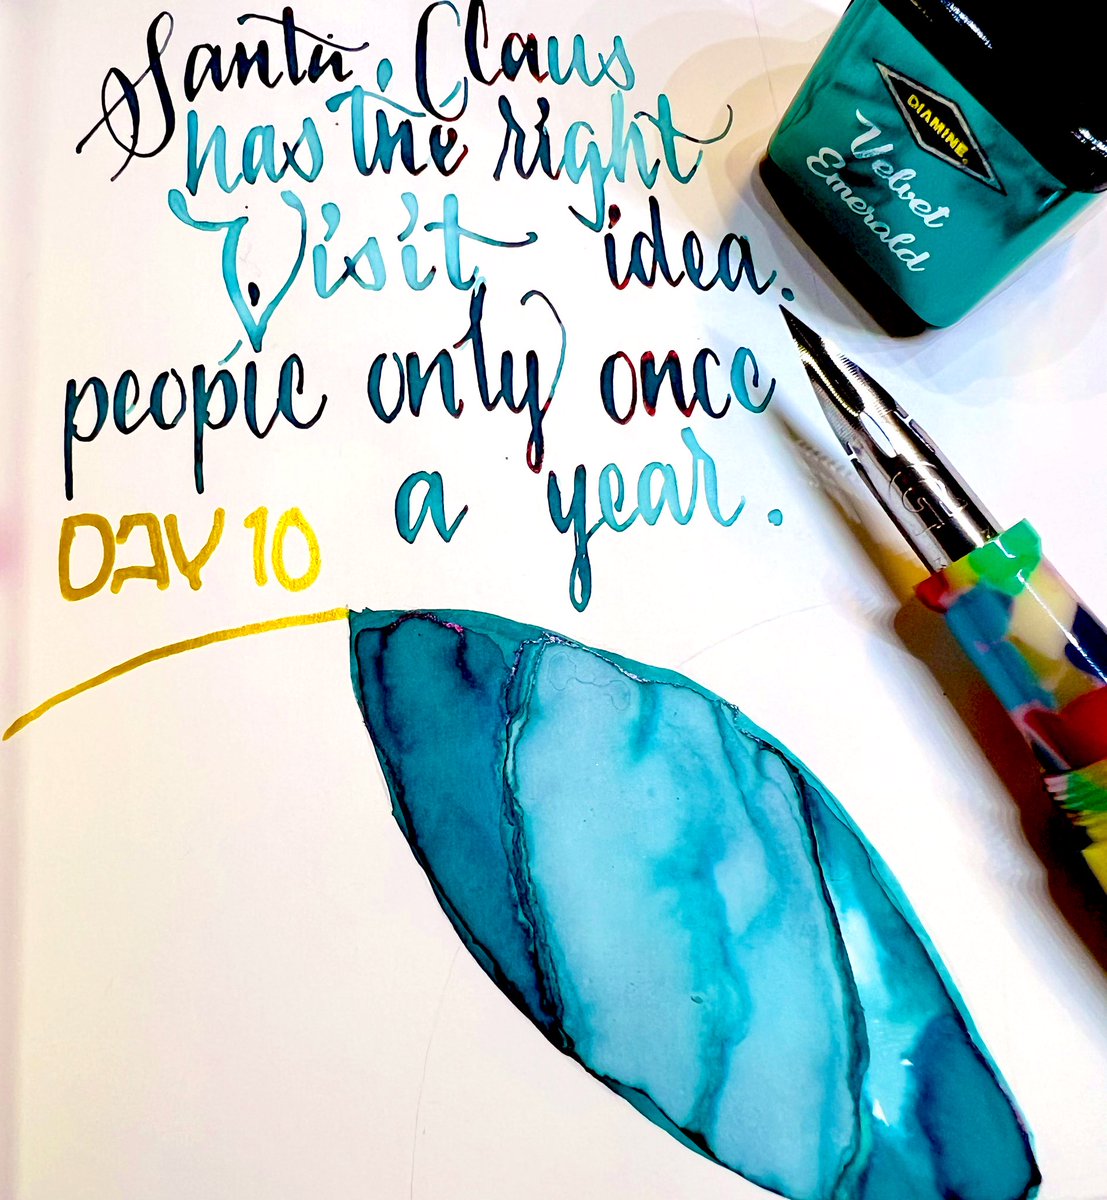 Santa Claus
has the right
idea.
Visit
people only once
a year.
DAY 10
DIAMINE
Velvet
Emerald